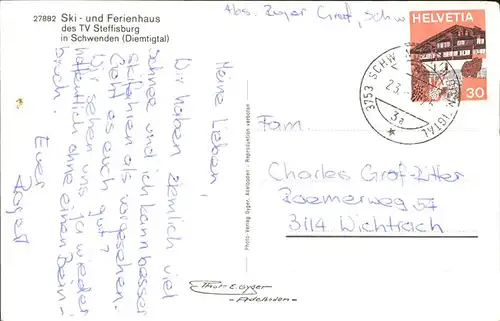 27882 Ski - und Ferienhaus
des TV Steffisburg
in Schwenden (Diemtigtal)
Abs. Roger Graf, Schw
HELVETIA
30
3753 SCHW
23.
3a
TIGTAL
Meine Lieben,
Wir haben ziemlich viel
Schnee und ich kann besser
skifahren als vorgesehen.
Geht es euch gut?
Wir sehen uns ja wieder
hoffentlich ohne einen Bein-
bruch.
Euer
Roger
Photo-Verlag Gyger, Adelboden - Reproduktion verboten
Fam.
Charles Graf-Ritter
Roemerweg 57
3114 Wichtrach
Phot. E. Gyger
- Adelboden -